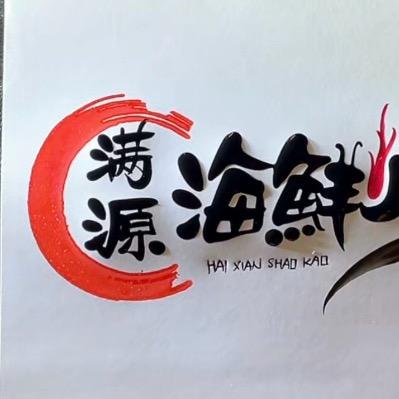 满源
海鲜
HAI XIAN SHAO KAO